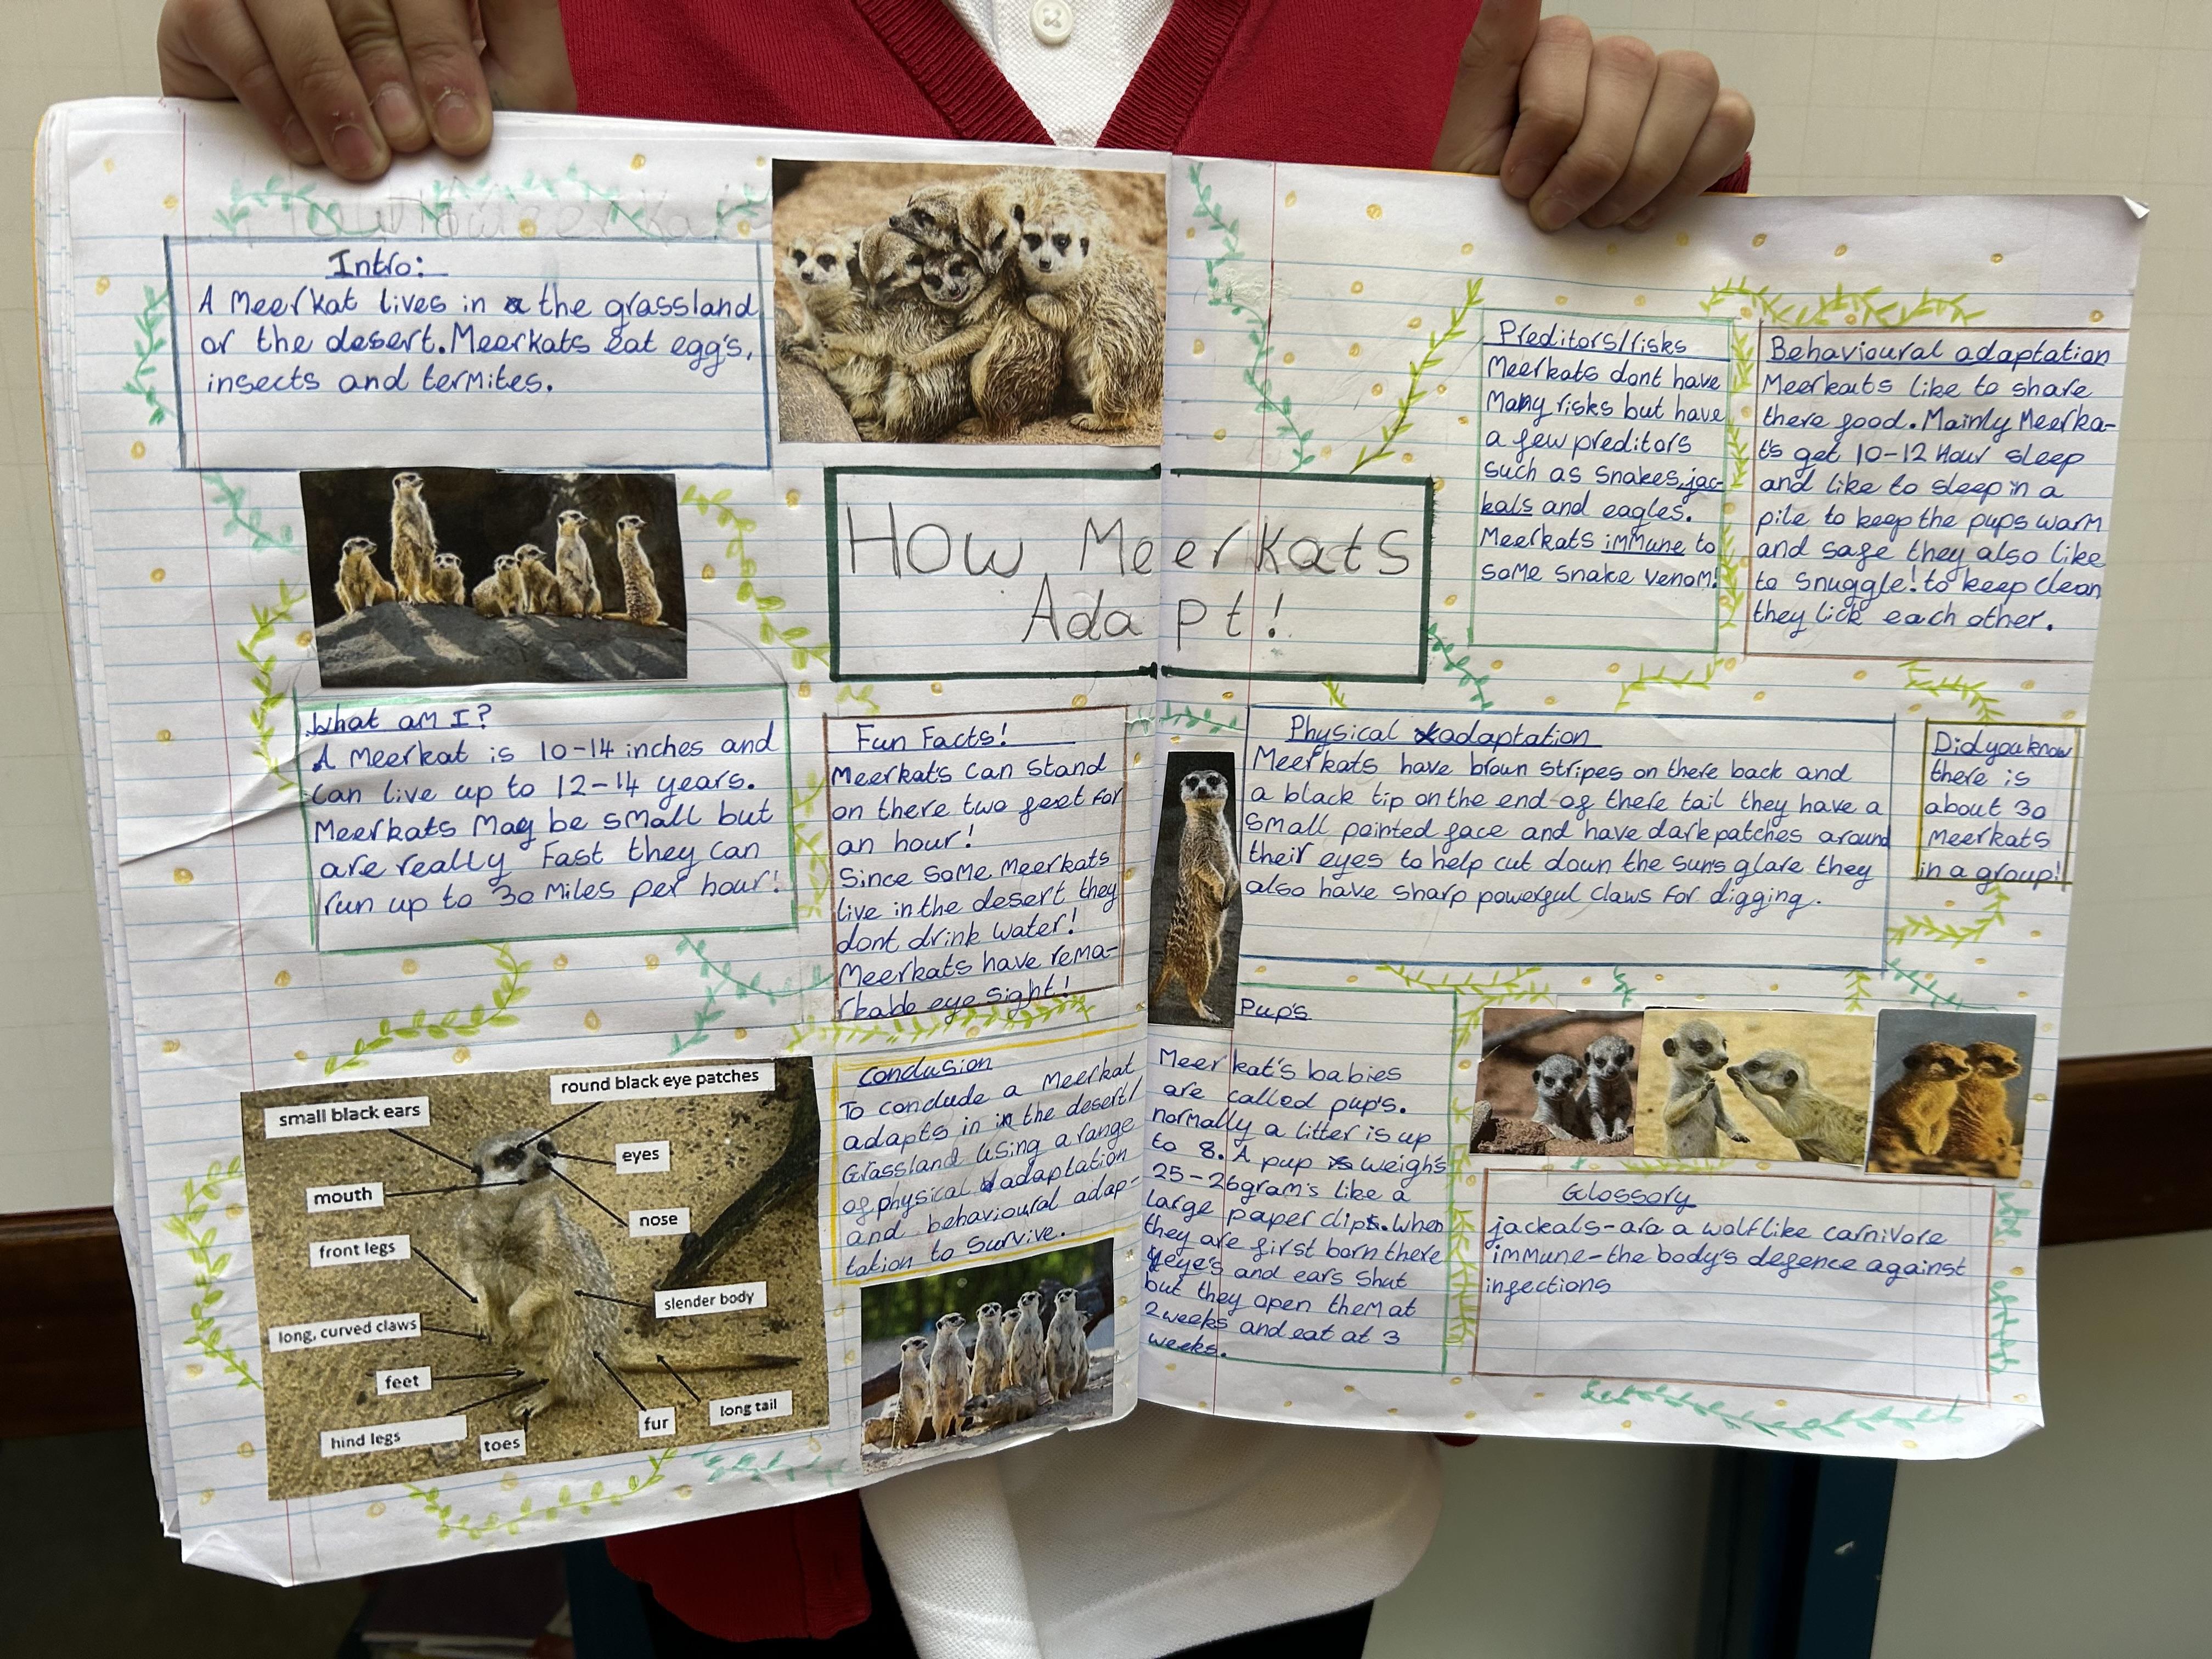 Intro:
A Meerkat lives in the grassland
or the desert. Meerkats eat egg's,
insects and termites.
How Meerkats
Adapt!
What am I?
A Meerkat is 10-14 inches and
can live up to 12-14 years.
Meerkats May be small but
are really Fast they can
run up to 30 Miles per hour!
Fun Facts!
Meerkats can stand
on there two feet for
an hour!
Since some Meerkats
live in the desert they
dont drink water!
Meerkats have rema-
rkable eye sight!
small black ears
round black eye patches
eyes
mouth
nose
front legs
slender body
long, curved claws
feet
hind legs
toes
fur
long tail
Conclusion
To conclude a Meerkat
adapts in in the desert/
Grassland using a range
of physical adaptation
and behavioural adap-
tation to survive.
Preditors/risks
Meerkats dont have
Many risks but have
a few preditors
such as snakes, jac-
kals and eagles.
Meerkats immune to
some snake venom!
Behavioural adaptation
Meerkats like to share
there food. Mainly Meerka-
ts get 10-12 Hour sleep
and like to sleep in a
pile to keep the pups warm
and safe they also like
to snuggle! to keep clean
they lick each other.
Physical adaptation
Meerkats have brown stripes on there back and
a black tip on the end of there tail they have a
small pointed face and have dark patches around
their eyes to help cut down the sun's glare they
also have sharp powerful claws for digging.
Did you know
there is
about 30
Meerkats
in a group!
Pup's
Meerkat's babies
are called pup's.
normally a litter is up
to 8. A pup weigh's
25-26gram's like a
large paper clip. When
they are first born there
eye's and ears shut
but they open them at
2 weeks and eat at 3
weeks.
Glossory
jackals-are a wolf like carnivore
immune-the body's defence against
infections